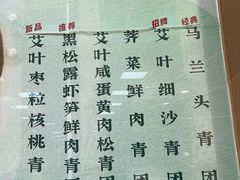 经典
马兰头青团
招牌
艾叶细沙青团
荠菜鲜肉青团
艾叶咸蛋黄肉松青团
推荐
黑松露虾笋鲜肉青
新品
艾叶枣粒核桃青